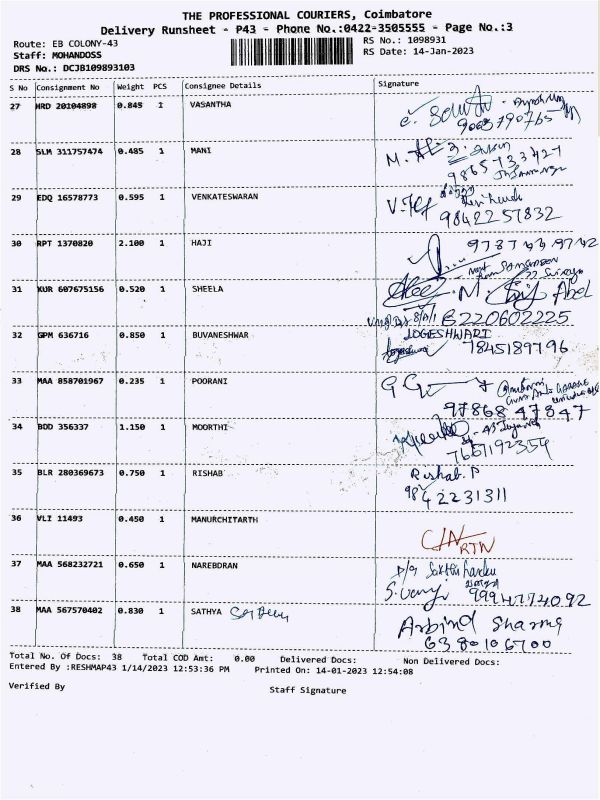 THE PROFESSIONAL COURIERS, Coimbatore
Delivery Runsheet - P43 - Phone No.:0422-3505555 - Page No.:3
Route: EB COLONY-43 RS No.: 1098931
Staff: MOHANDOSS RS Date: 14-Jan-2023
DRS No.: DCJB109893103
S No Consignment No Weight PCS Consignee Details Signature
27 HRD 20104898 0.845 1 VASANTHA
9003790765
28 SLM 311757474 0.485 1 MANI
M.
29 EDQ 16578773 0.595 1 VENKATESWARAN
9842257832
30 RPT 1370820 2.100 1 HAJI
31 KUR 607675156 0.520 1 SHEELA
M Abel
6220602225
32 GPM 636716 0.850 1 BUVANESHWAR LOGESHWARI
7845189796
33 MAA 858701967 0.235 1 POORANI
97868 47847
34 BDD 356337 1.150 1 MOORTHI
7667192354
35 BLR 280369673 0.750 1 RISHAB Rishab. P
9842231311
36 VLI 11493 0.450 1 MANURCHITARTH
RTN
37 MAA 568232721 0.650 1 NAREBDRAN
9994774092
38 MAA 567570402 0.830 1 SATHYA
Arbind Sharma
6380106700
Total No. Of Docs: 38 Total COD Amt: 0.00 Delivered Docs: Non Delivered Docs:
Entered By :RESHMAP43 1/14/2023 12:53:36 PM Printed On: 14-01-2023 12:54:08
Verified By Staff Signature